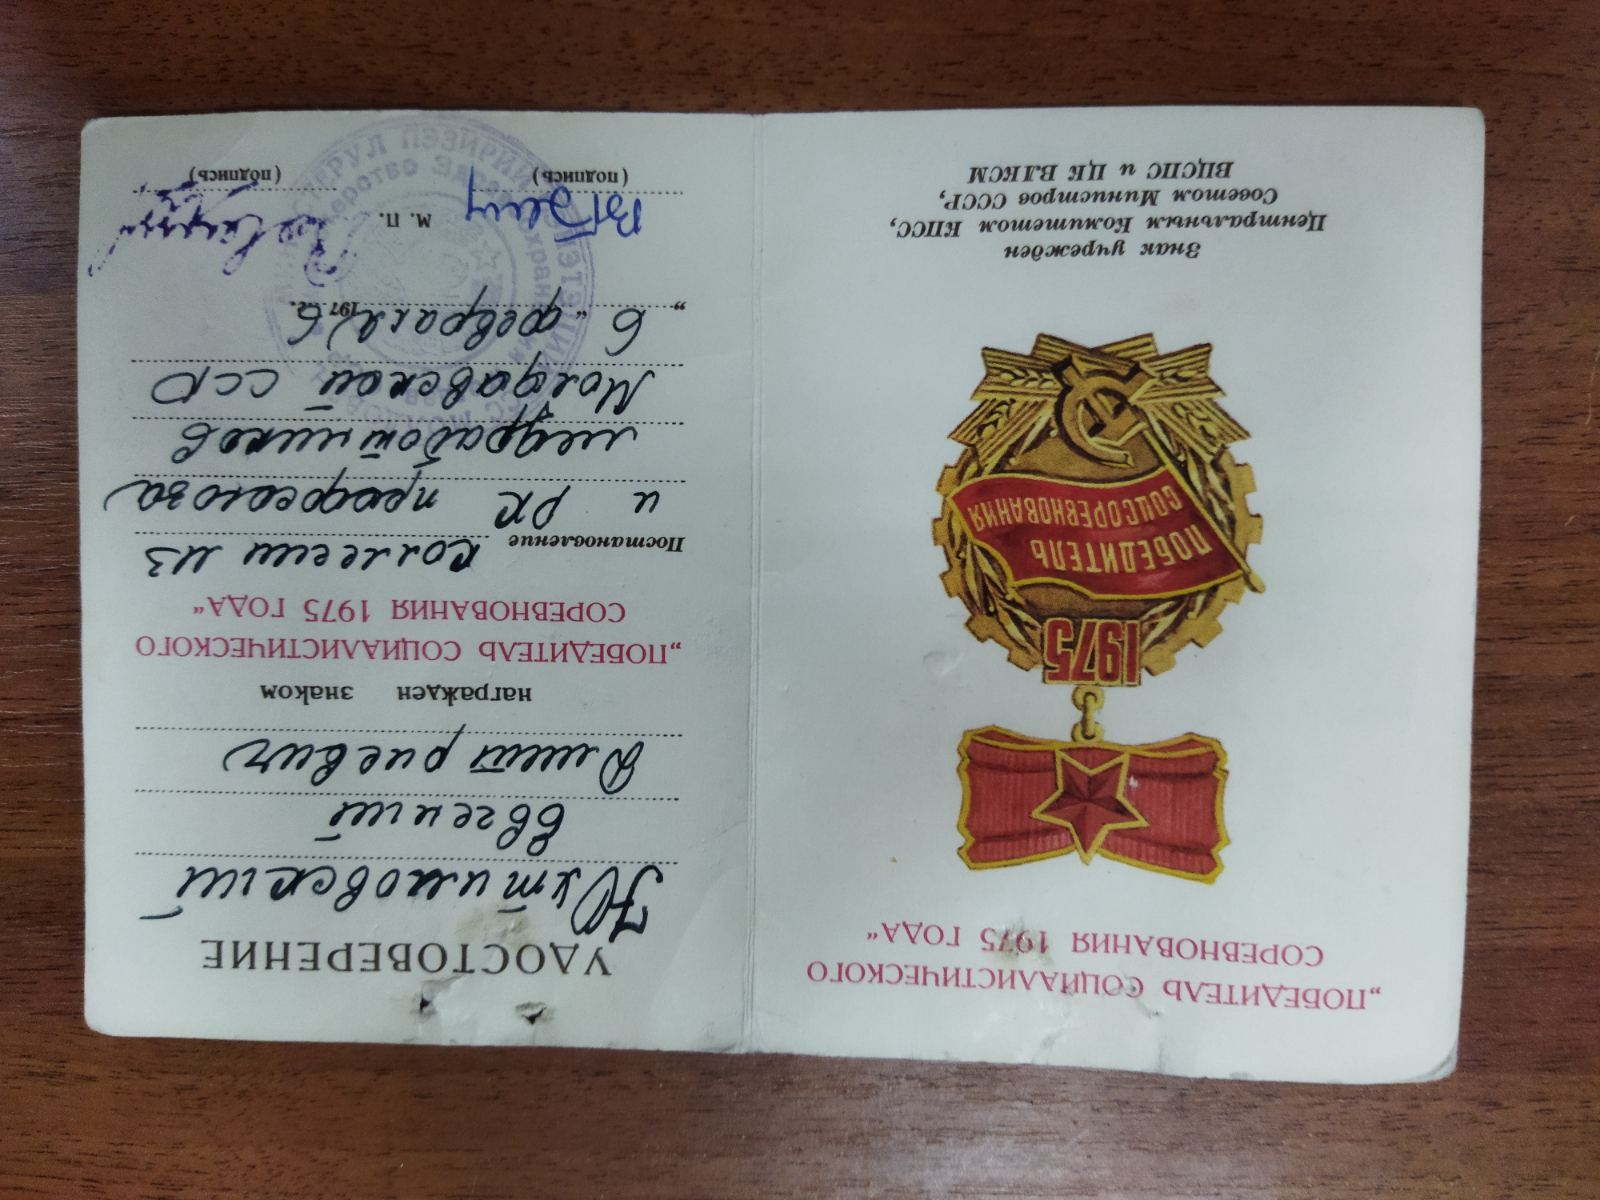 „ПОБЕДИТЕЛЬ СОЦИАЛИСТИЧЕСКОГО
СОРЕВНОВАНИЯ 1975 ГОДА“
1975
ПОБЕДИТЕЛЬ
СОЦСОРЕВНОВАНИЯ
Знак учрежден
Центральным Комитетом КПСС,
Советом Министров СССР,
ВЦСПС и ЦК ВЛКСМ
УДОСТОВЕРЕНИЕ
Юхтимовский
Евгений
Дмитриевич
награжден знаком
„ПОБЕДИТЕЛЬ СОЦИАЛИСТИЧЕСКОГО
СОРЕВНОВАНИЯ 1975 ГОДА“
Постановление коллегии МЗ
и РК профсоюза
медработников
Молдавской ССР
„6“ февраля 1976 г.
М. П.
(подпись) (подпись)